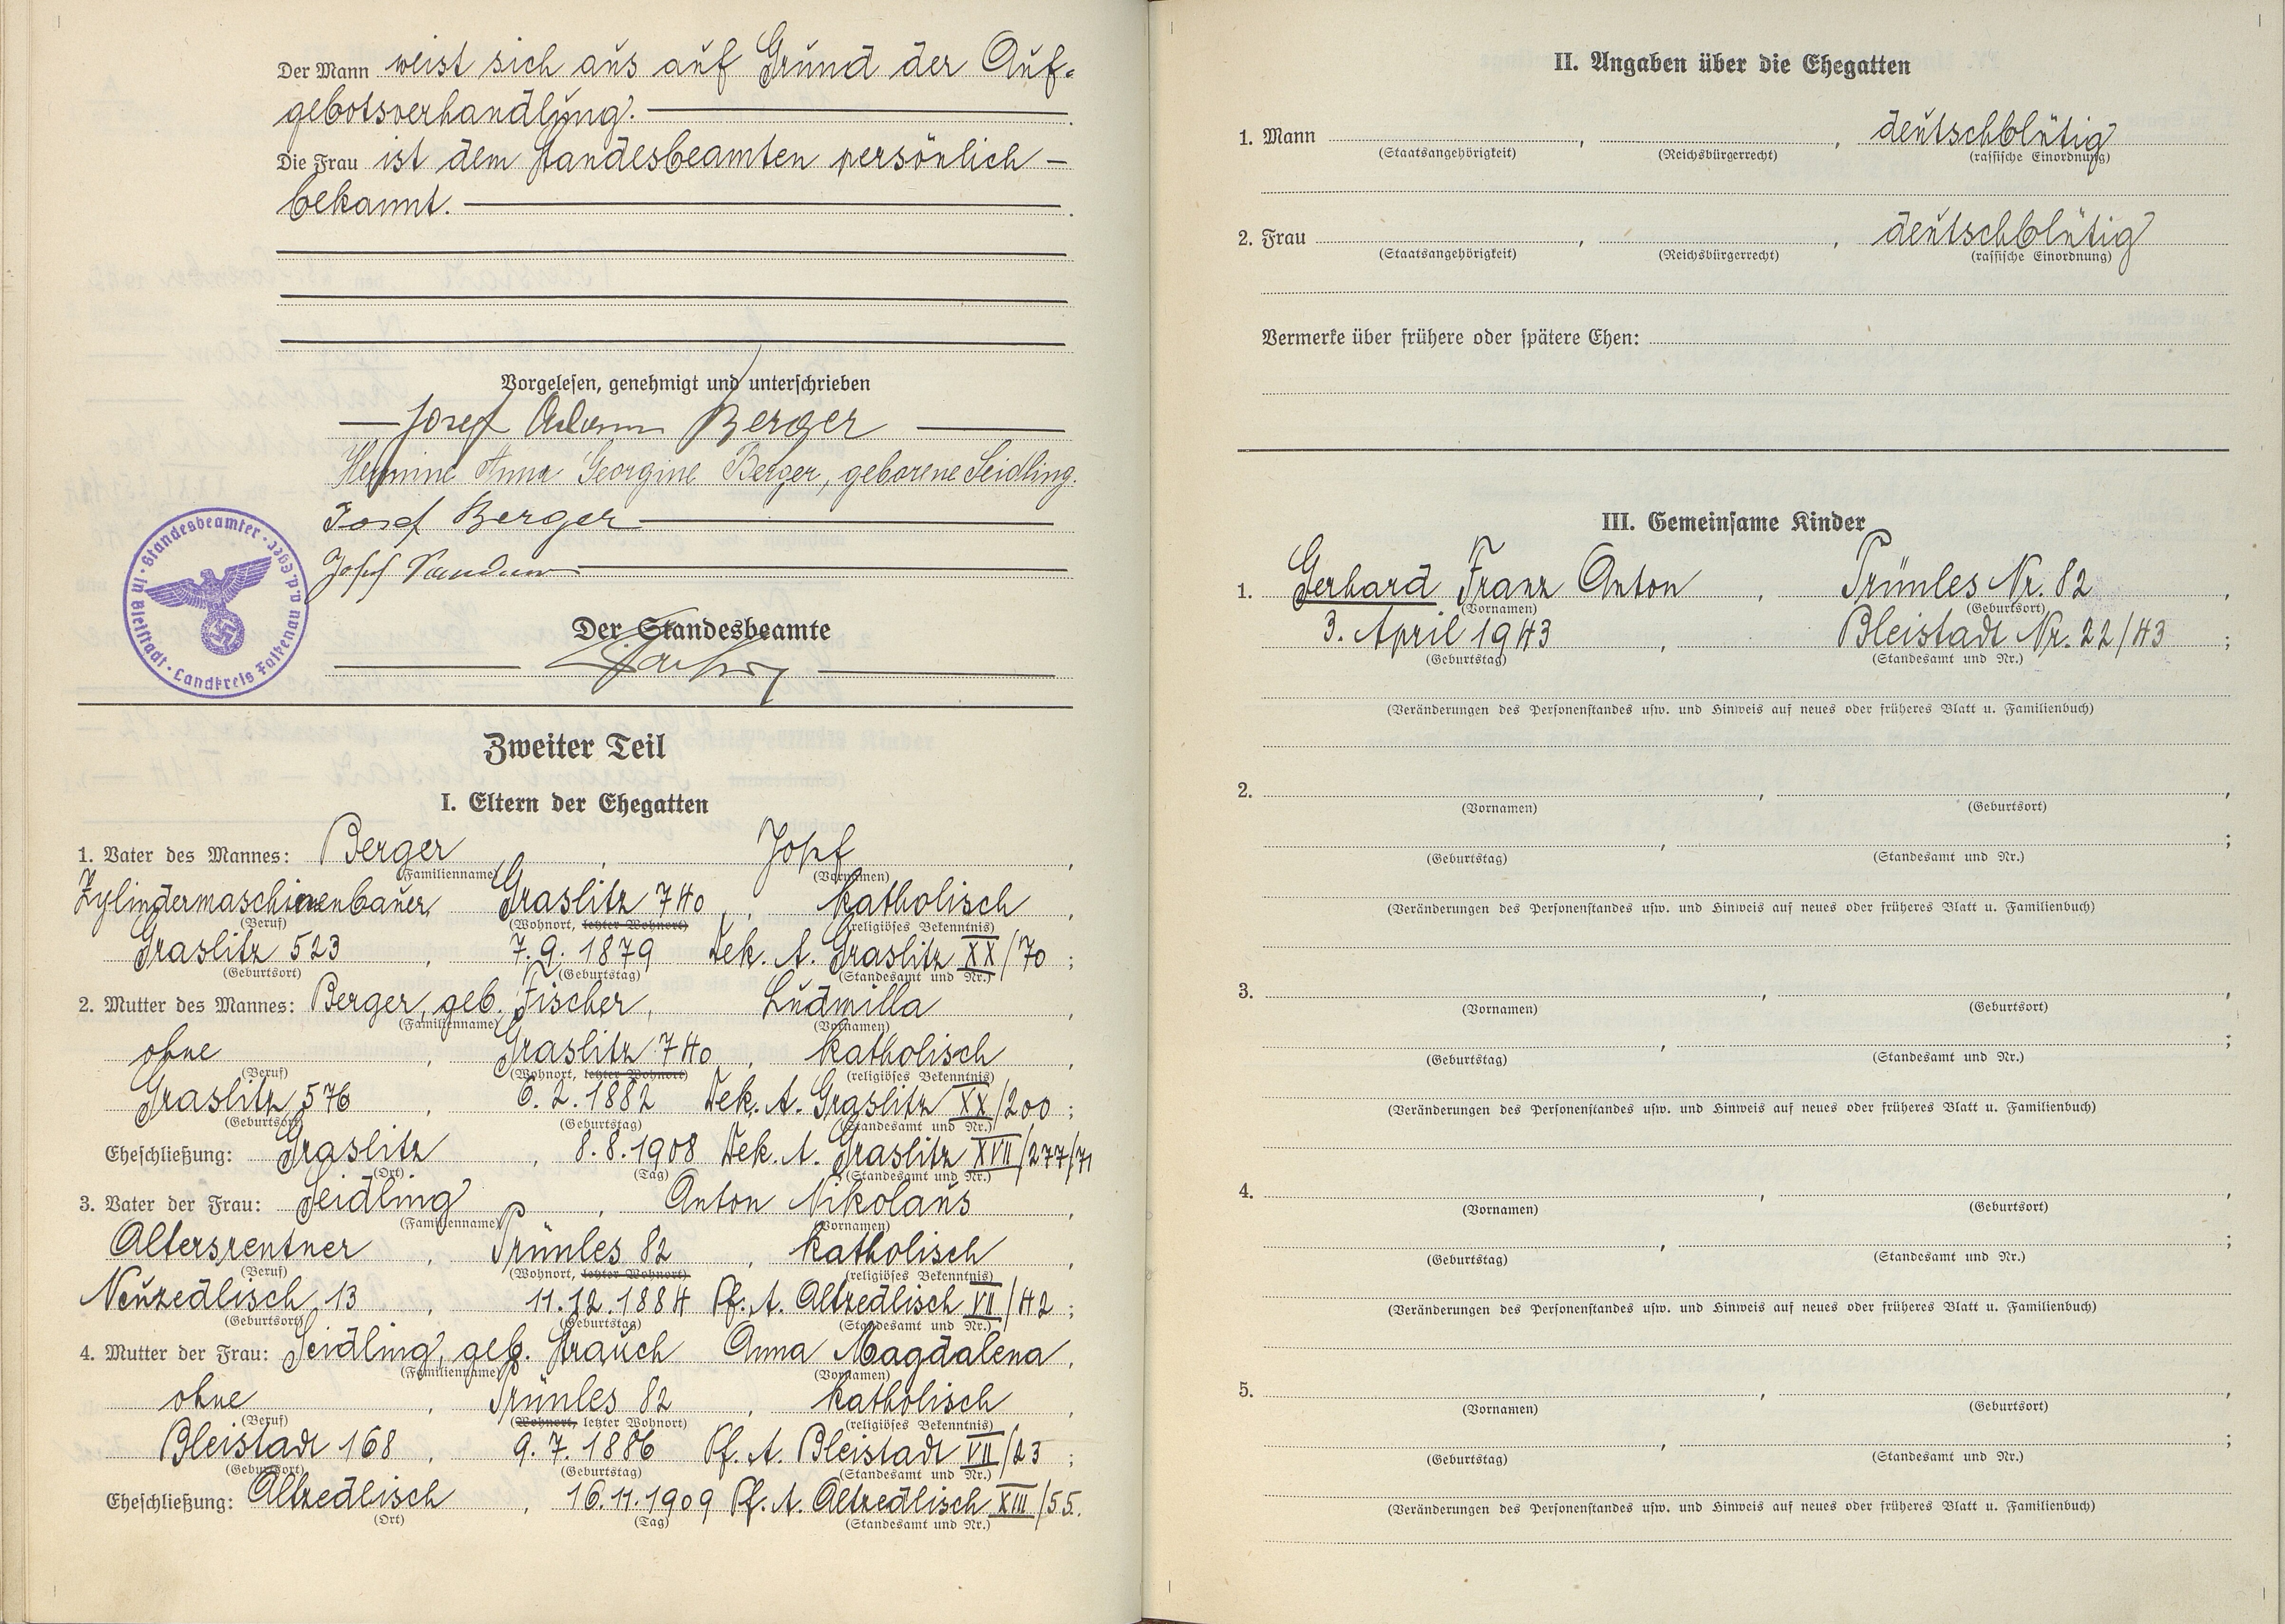 Der Mann weist sich aus auf Grund der Auf-
gebotsverhandlung.
Die Frau ist dem Standesbeamten persönlich
bekannt.
Vorgelesen, genehmigt und unterschrieben
Josef Adam Berger
Hermine Anna Georgine Berger, geborene Seidling.
Josef Berger
Josef
Der Standesbeamte
Standesbeamter · in Bleistadt · Landkreis Falkenau a.d. Eger ·
Zweiter Teil
I. Eltern der Ehegatten
1. Vater des Mannes: Berger, Josef,
(Familienname) (Vornamen)
Zylindermaschinenbauer, Graslitz 740, katholisch,
(Beruf) (Wohnort, letzter Wohnort) (religiöses Bekenntnis)
Graslitz 523, 7.9.1879 Dek. A. Graslitz XX/70;
(Geburtsort) (Geburtstag) (Standesamt und Nr.)
2. Mutter des Mannes: Berger, geb. Fischer, Ludmilla,
(Familienname) (Vornamen)
ohne, Graslitz 740, katholisch,
(Beruf) (Wohnort, letzter Wohnort) (religiöses Bekenntnis)
Graslitz 576, 6.2.1882 Dek. A. Graslitz XX/200;
(Geburtsort) (Geburtstag) (Standesamt und Nr.)
Eheschließung: Graslitz, 8.8.1908 Dek. A. Graslitz XVII/277/71
(Ort) (Tag) (Standesamt und Nr.)
3. Vater der Frau: Seidling, Anton Nikolaus,
(Familienname) (Vornamen)
Altersrentner, Prünles 82, katholisch,
(Beruf) (Wohnort, letzter Wohnort) (religiöses Bekenntnis)
Neuzedlisch 13, 11.12.1884 Pf. A. Altzedlisch VII/42;
(Geburtsort) (Geburtstag) (Standesamt und Nr.)
4. Mutter der Frau: Seidling, geb. Strauch Anna Magdalena,
(Familienname) (Vornamen)
ohne, Prünles 82, katholisch,
(Beruf) (Wohnort, letzter Wohnort) (religiöses Bekenntnis)
Bleistadt 168, 9.7.1886 Pf. A. Bleistadt VII/23;
(Geburtsort) (Geburtstag) (Standesamt und Nr.)
Eheschließung: Altzedlisch, 16.11.1909 Pf. A. Altzedlisch XIII/55.
(Ort) (Tag) (Standesamt und Nr.)
II. Angaben über die Ehegatten
1. Mann , , deutschblütig
(Staatsangehörigkeit) (Reichsbürgerrecht) (rassische Einordnung)
2. Frau , , deutschblütig
(Staatsangehörigkeit) (Reichsbürgerrecht) (rassische Einordnung)
Vermerke über frühere oder spätere Ehen:
III. Gemeinsame Kinder
1. Gerhard Franz Anton, Prünles Nr. 82,
(Vornamen) (Geburtsort)
3. April 1943, Bleistadt Nr. 22/43;
(Geburtstag) (Standesamt und Nr.)
(Veränderungen des Personenstandes usw. und Hinweis auf neues oder früheres Blatt u. Familienbuch)
2. , ,
(Vornamen) (Geburtsort)
, ;
(Geburtstag) (Standesamt und Nr.)
(Veränderungen des Personenstandes usw. und Hinweis auf neues oder früheres Blatt u. Familienbuch)
3. , ,
(Vornamen) (Geburtsort)
, ;
(Geburtstag) (Standesamt und Nr.)
(Veränderungen des Personenstandes usw. und Hinweis auf neues oder früheres Blatt u. Familienbuch)
4. , ,
(Vornamen) (Geburtsort)
, ;
(Geburtstag) (Standesamt und Nr.)
(Veränderungen des Personenstandes usw. und Hinweis auf neues oder früheres Blatt u. Familienbuch)
5. , ,
(Vornamen) (Geburtsort)
, ;
(Geburtstag) (Standesamt und Nr.)
(Veränderungen des Personenstandes usw. und Hinweis auf neues oder früheres Blatt u. Familienbuch)